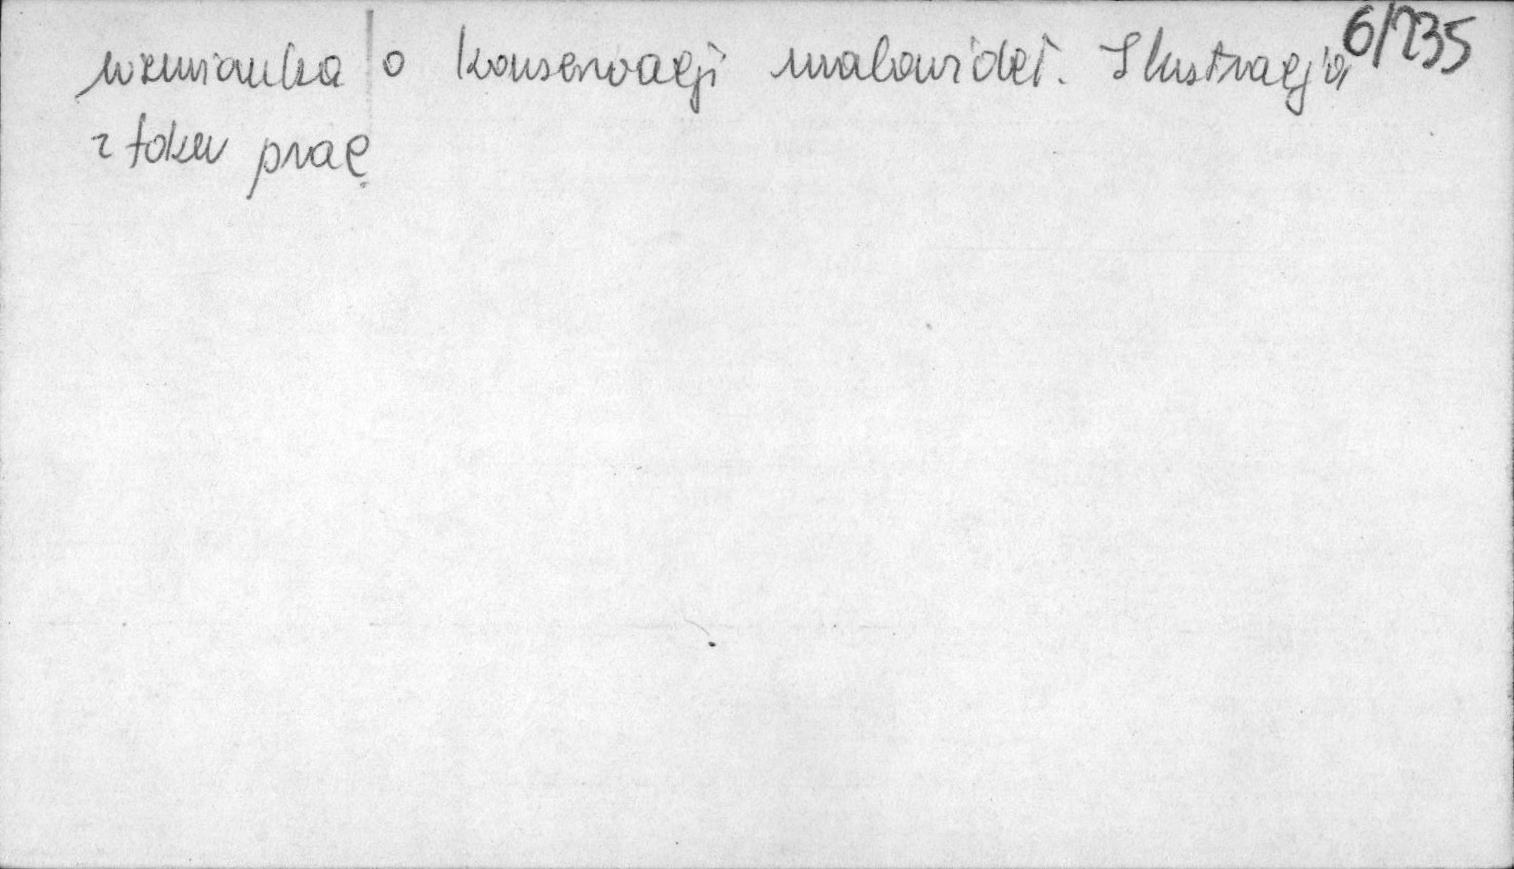 6/235
wzmianka o konserwacji malowideł. Ilustracja
z toku prac